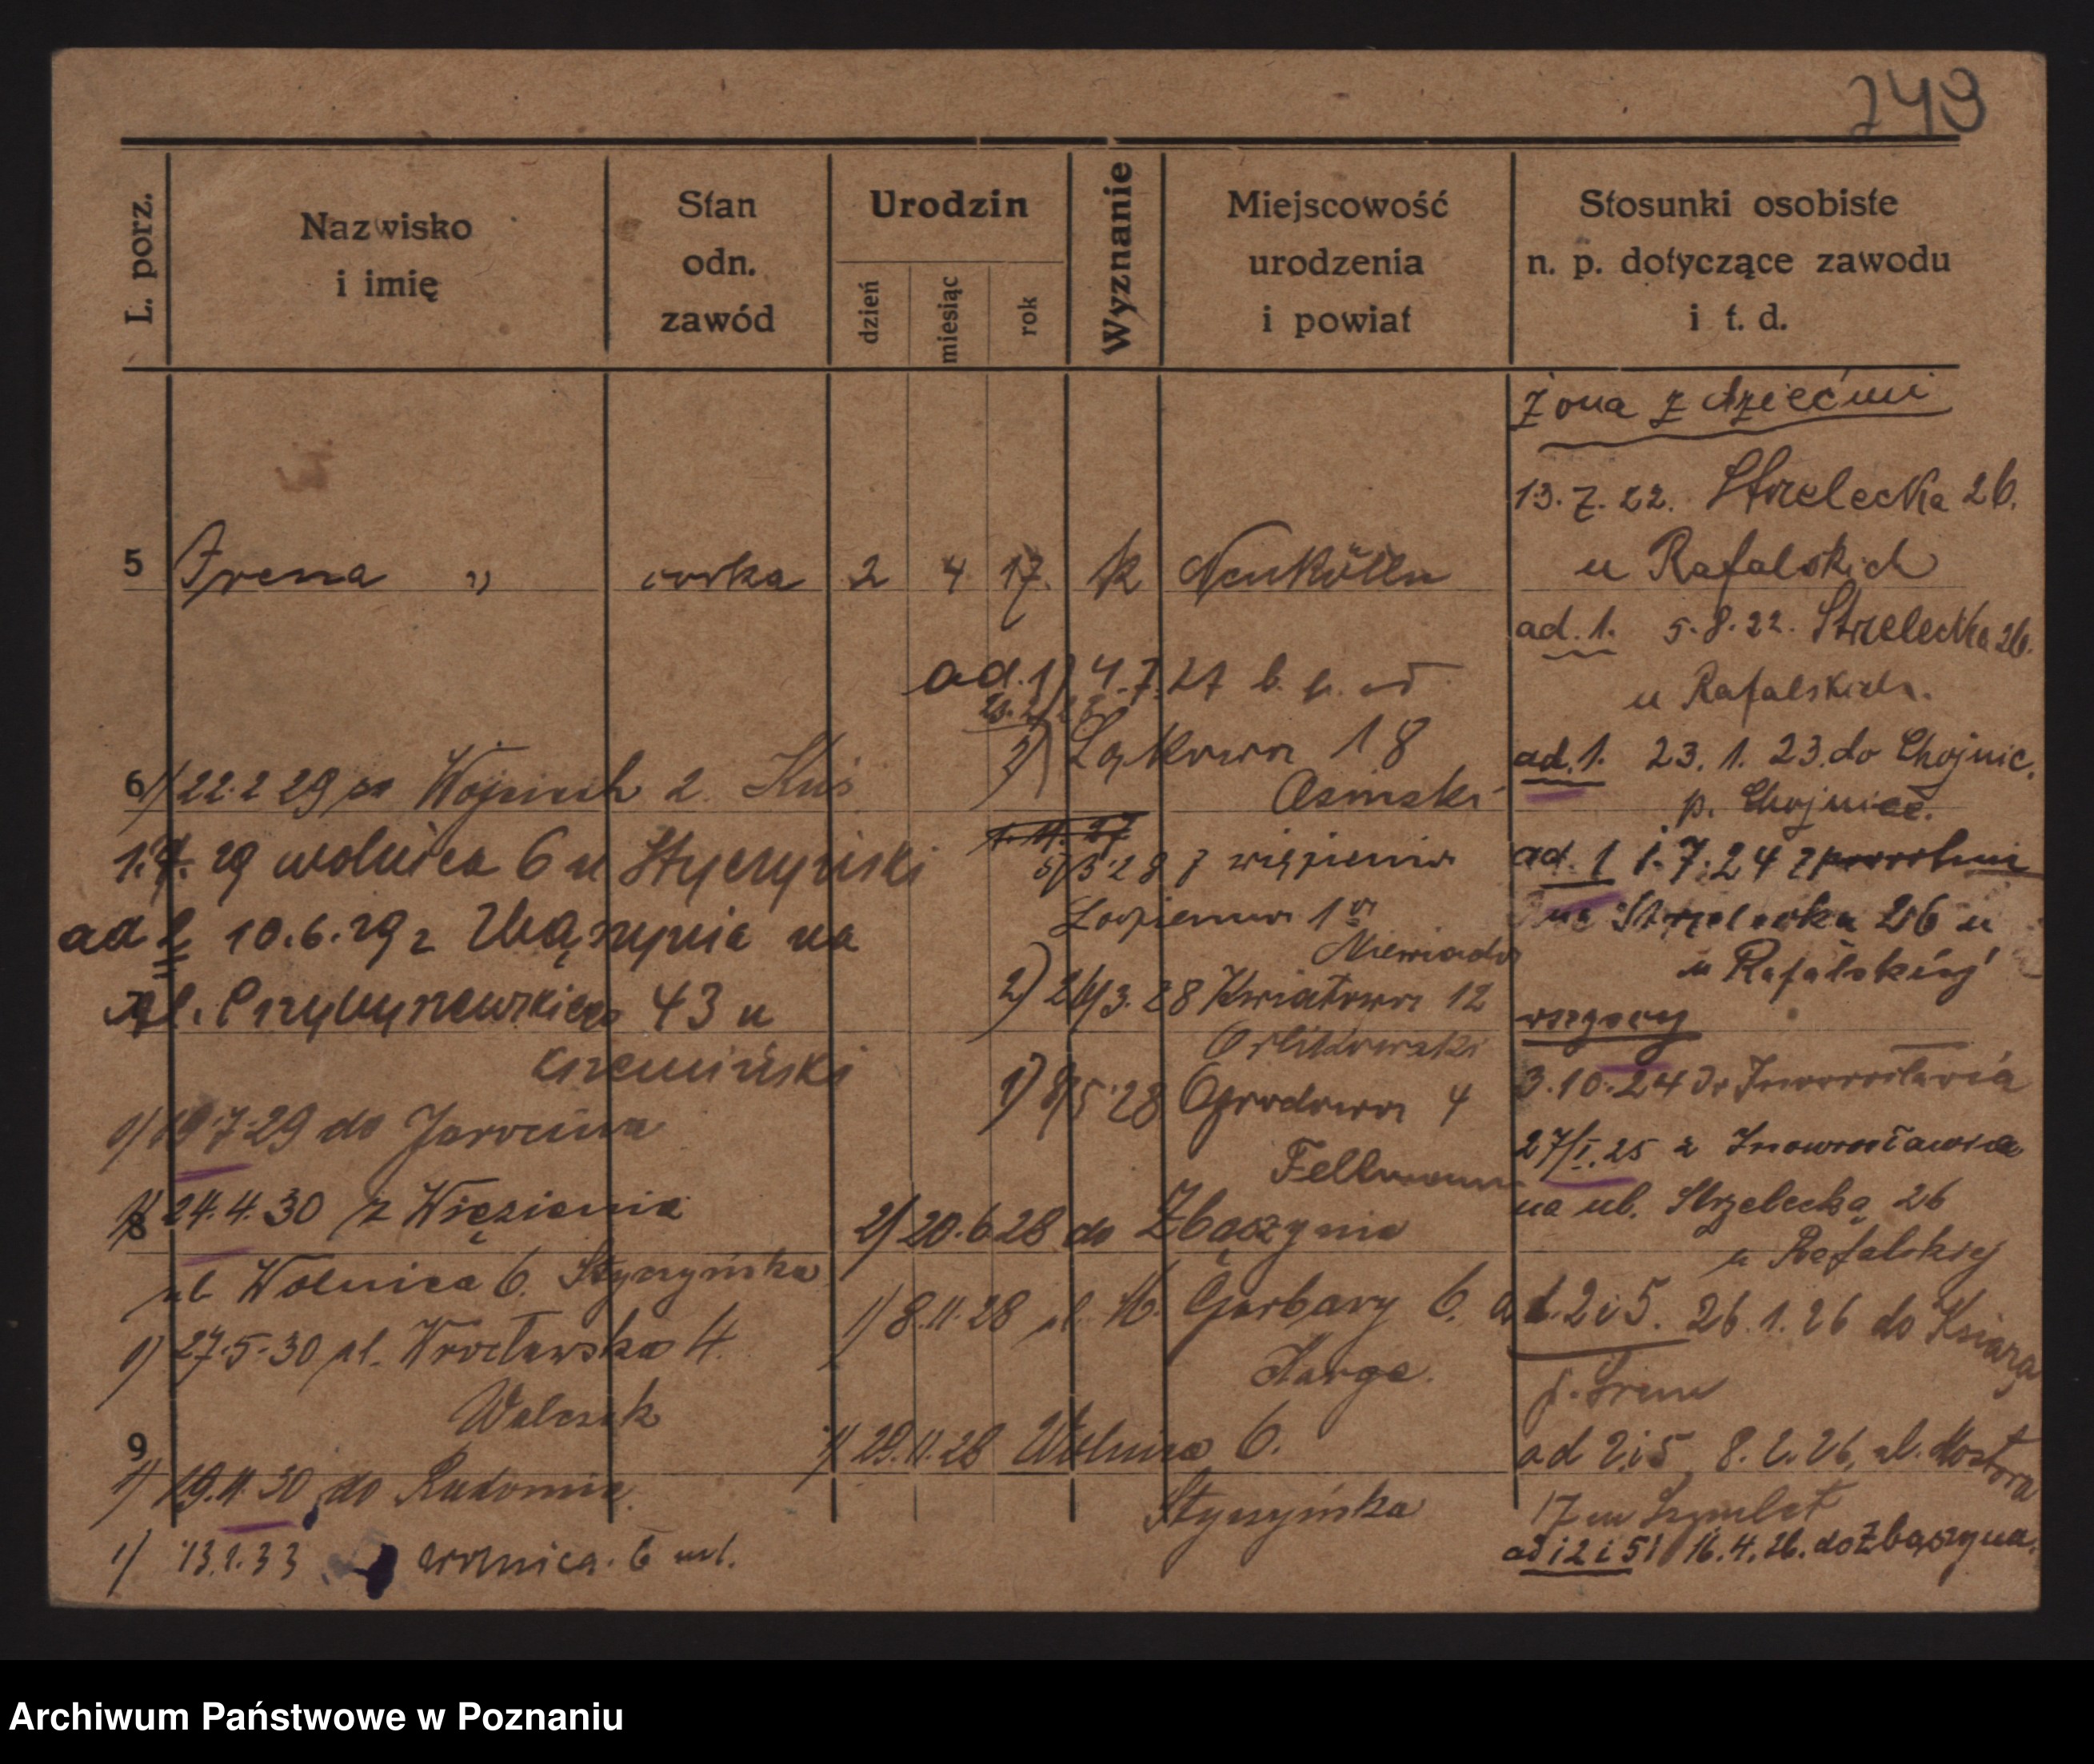 749
L. porz.
Nazwisko
i imię
Stan
odn.
zawód
Urodzin
dzień
miesiąc
rok
Wyznanie
Miejscowość
urodzenia
i powiat
Stosunki osobiste
n. p. dotyczące zawodu
i t. d.
5 Irena " córka 2 4 17. k Neukölln
6 1) 22.2 29 2. Kuś
1.4.29 wolnica 6 u Styczyński
ad 2 10.6.29 z Zbąszynia na
7 ul. Przybyszewskiego 43 u
Krzemiński
1) 19.7.29 do Jarocina
8 1) 24.4.30 z Więzienia
ul Wolnica 6. Styczyńska
1) 27.5.30 ul. Wrocławska 4.
Walczak
9
1) 19.11.30 do Radomia
1) 13.1.33 wolnica. 6
ad. 1) 4.7.27
2) Łąkowa 18
Osinski
5/3.28 z więzienia
2) 26/3.28 Kwiatowa 12
Orlikowski
1) 8/5.28 Ogrodowa 4
Fellmann
2) 20.6.28 do Zbąszynia
1) 8.11.28 ul. W. Garbary 6.
Karge.
1) 29.11.28 Wolnica 6.
Styczyńska
Żona z dziećmi
13.7.22. Strzelecka 26.
u Rafalskich
ad. 1. 5.8.22. Strzelecka 26.
u Rafalskich.
ad. 1. 23.1.23. do Chojnic.
p. Chojnice.
ad. 1 1.7.24 z powrotem
na Strzelecka 26 u
u Rafalskiej
wszyscy
3.10.24 do Inowrocławia
27/I.25 z Inowrocławia
na ul. Strzelecką 26
u Rafalskiej
ad. 2 i 5. 26.1.26 do Książa
p. Śrem
ad 2 i 5 8.2.26. ul. Mostowa
17
ad 1 2 i 5) 16.4.26. do Zbąszyna.
Archiwum Państwowe w Poznaniu